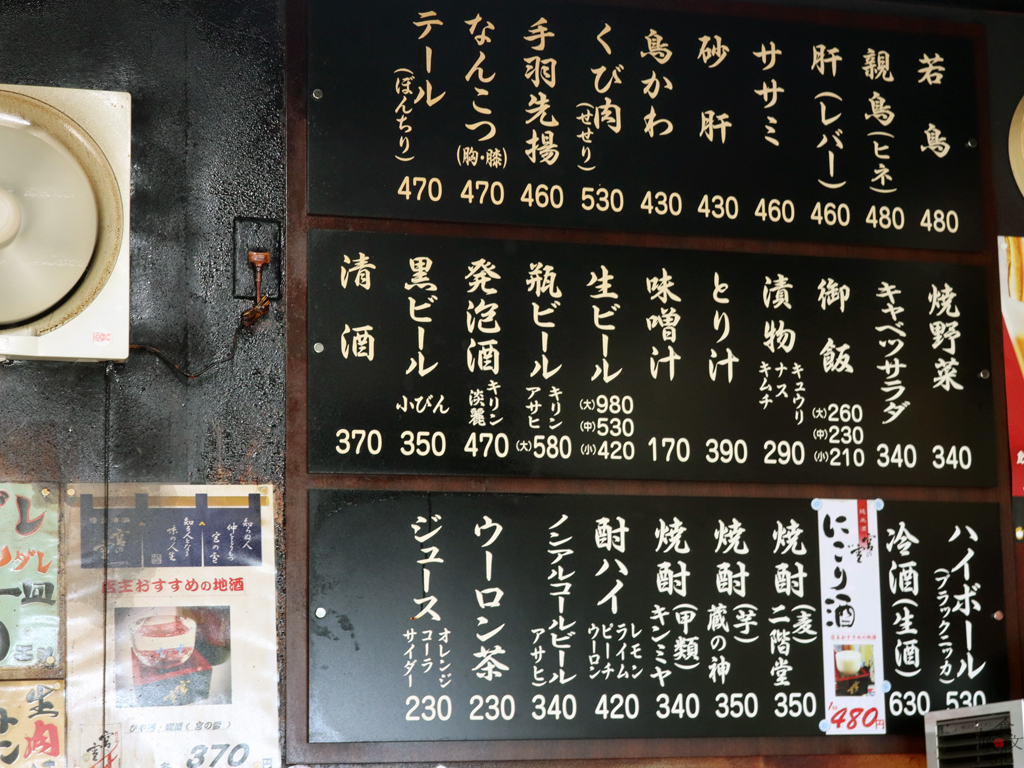 若鳥 480
親鳥(ヒネ) 480
肝(レバー) 460
ササミ 460
砂肝 430
鳥かわ 430
くび肉(せせり) 530
手羽先揚 460
なんこつ(胸・膝) 470
テール(ぼんちり) 470
焼野菜 340
キャベツサラダ 340
御飯 (大)260 (中)230 (小)210
漬物 キュウリ ナス キムチ 290
とり汁 390
味噌汁 170
生ビール (大)980 (中)530 (小)420
瓶ビール キリン アサヒ (大)580
発泡酒 キリン 淡麗 470
黒ビール 小びん 350
清酒 370
ハイボール(ブラックニッカ) 530
冷酒(生酒) 630
にごり酒
480円
焼酎(麦) 二階堂 350
焼酎(芋) 蔵の神 350
焼酎(甲類) キンミヤ 340
酎ハイ レモン ライム ピーチ ウーロン 420
ノンアルコールビール アサヒ 340
ウーロン茶 230
ジュース オレンジ コーラ サイダー 230
知らぬ人
知る人となる
味の人生
おすすめの地酒
370
一皿
生
肉